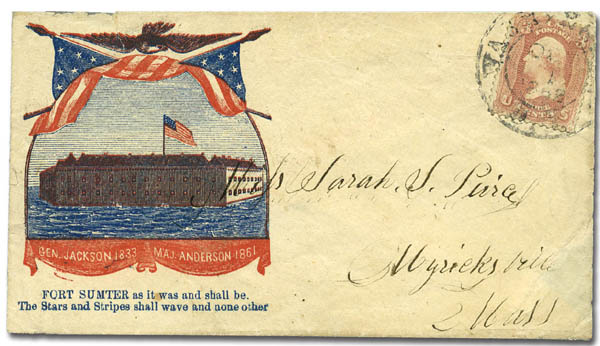 GEN. JACKSON 1833 MAJ. ANDERSON 1861
FORT SUMTER as it was and shall be.
The Stars and Stripes shall wave and none other
Sarah S. Peirce
Myricksville
Mass
POSTAGE